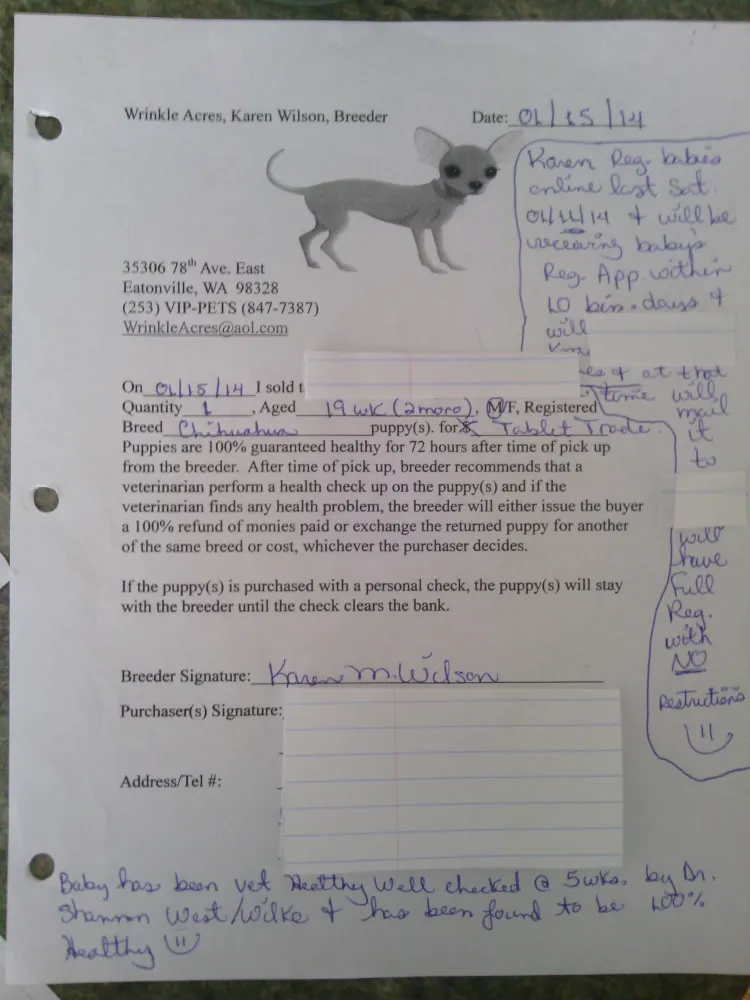 Wrinkle Acres, Karen Wilson, Breeder
Date: 01/15/14
35306 78th Ave. East
Eatonville, WA 98328
(253) VIP-PETS (847-7387)
WrinkleAcres@aol.com
Karen Reg. babies
online last Sat.
01/11/14 & will be
receiving baby's
Reg. App within
10 bis. days &
will
& at that
time will
mail
it
to
will
have
Full
Reg.
with
NO
Restrictions
On 01/15/14 I sold t
Quantity 1, Aged 19 wk (2moro), M/F, Registered
Breed Chihuahua puppy(s). for Tablet Trade.
Puppies are 100% guaranteed healthy for 72 hours after time of pick up
from the breeder. After time of pick up, breeder recommends that a
veterinarian perform a health check up on the puppy(s) and if the
veterinarian finds any health problem, the breeder will either issue the buyer
a 100% refund of monies paid or exchange the returned puppy for another
of the same breed or cost, whichever the purchaser decides.
If the puppy(s) is purchased with a personal check, the puppy(s) will stay
with the breeder until the check clears the bank.
Breeder Signature: Karen M. Wilson
Purchaser(s) Signature:
Address/Tel #:
Baby has been vet Healthy Well checked @ 5wks. by Dr.
Shannon West/Wilke & has been found to be 100%
Healthy